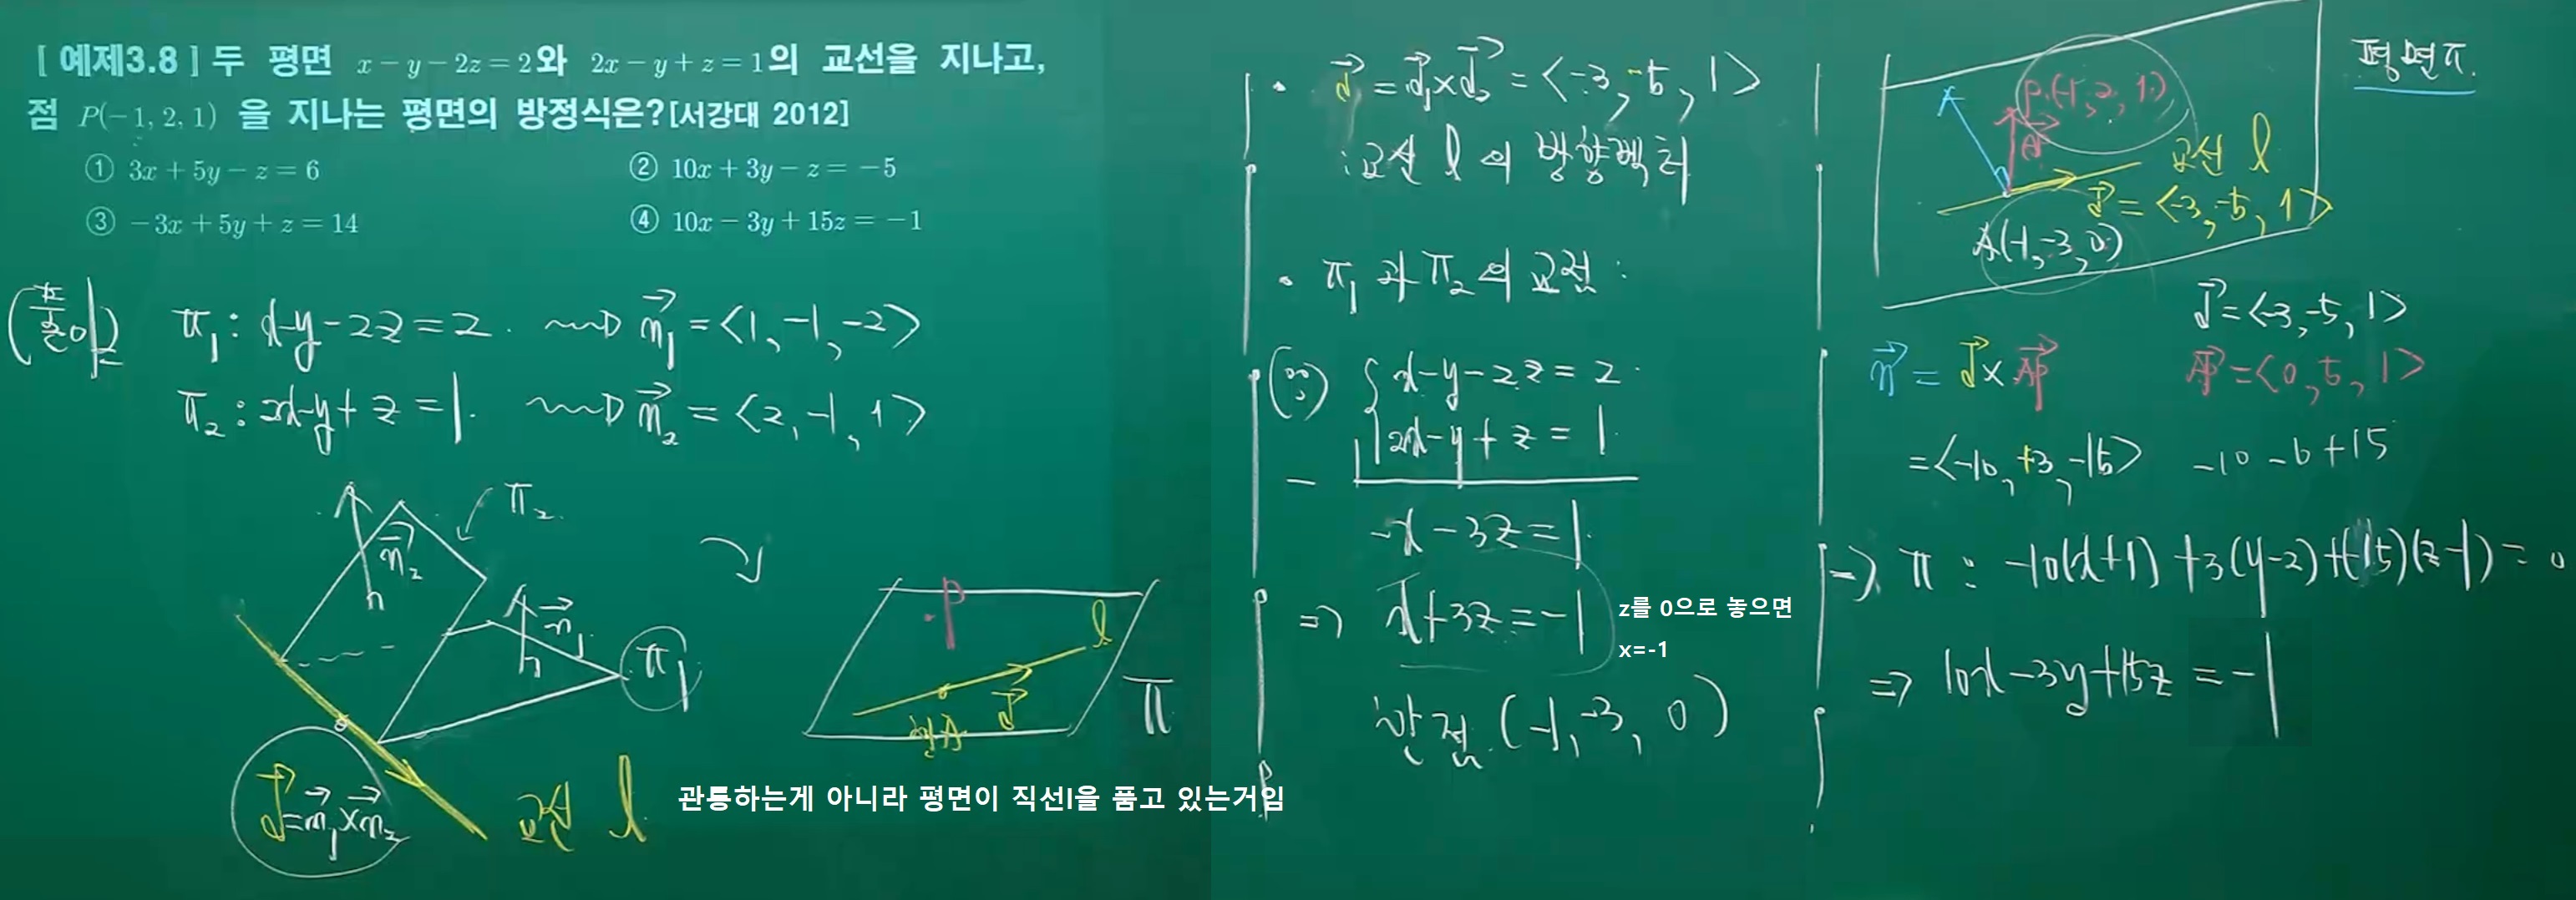 [ 예제3.8 ] 두 평면 x − y − 2z = 2 와 2x − y + z = 1 의 교선을 지나고,
점 P(−1, 2, 1) 을 지나는 평면의 방정식은?[서강대 2012]
① 3x + 5y − z = 6
② 10x + 3y − z = −5
③ −3x + 5y + z = 14
④ 10x − 3y + 15z = −1
(풀이)
π₁ : x-y-2z = 2. ⇝ n₁ = <1, -1, -2>
π₂ : 2x-y+z = 1. ⇝ n₂ = <2, -1, 1>
n₂
π₂
n₁
π₁
d = n₁ × n₂
교선 l
P
l
d
한점
π
관통하는게 아니라 평면이 직선l을 품고 있는거임
· d = d₁ × d₂ = <-3, -5, 1>
: 교선 l 의 방향벡터
· π₁ 과 π₂ 의 교점 :
(∵) x-y-2z = 2
2x-y+z = 1
-x-3z = 1
⇒ x+3z = -1
z를 0으로 놓으면
x=-1
한 점 (-1, -3, 0)
평면 π.
P(-1, 2, 1)
AP
교선 l
d = <-3, -5, 1>
A(-1, -3, 0)
d = <-3, -5, 1>
n = d × AP
AP = <0, 5, 1>
= <-10, +3, -15>
-10 -6 +15
→ π : -10(x+1) + 3(y-2) + (-15)(z-1) = 0
⇒ 10x - 3y + 15z = -1